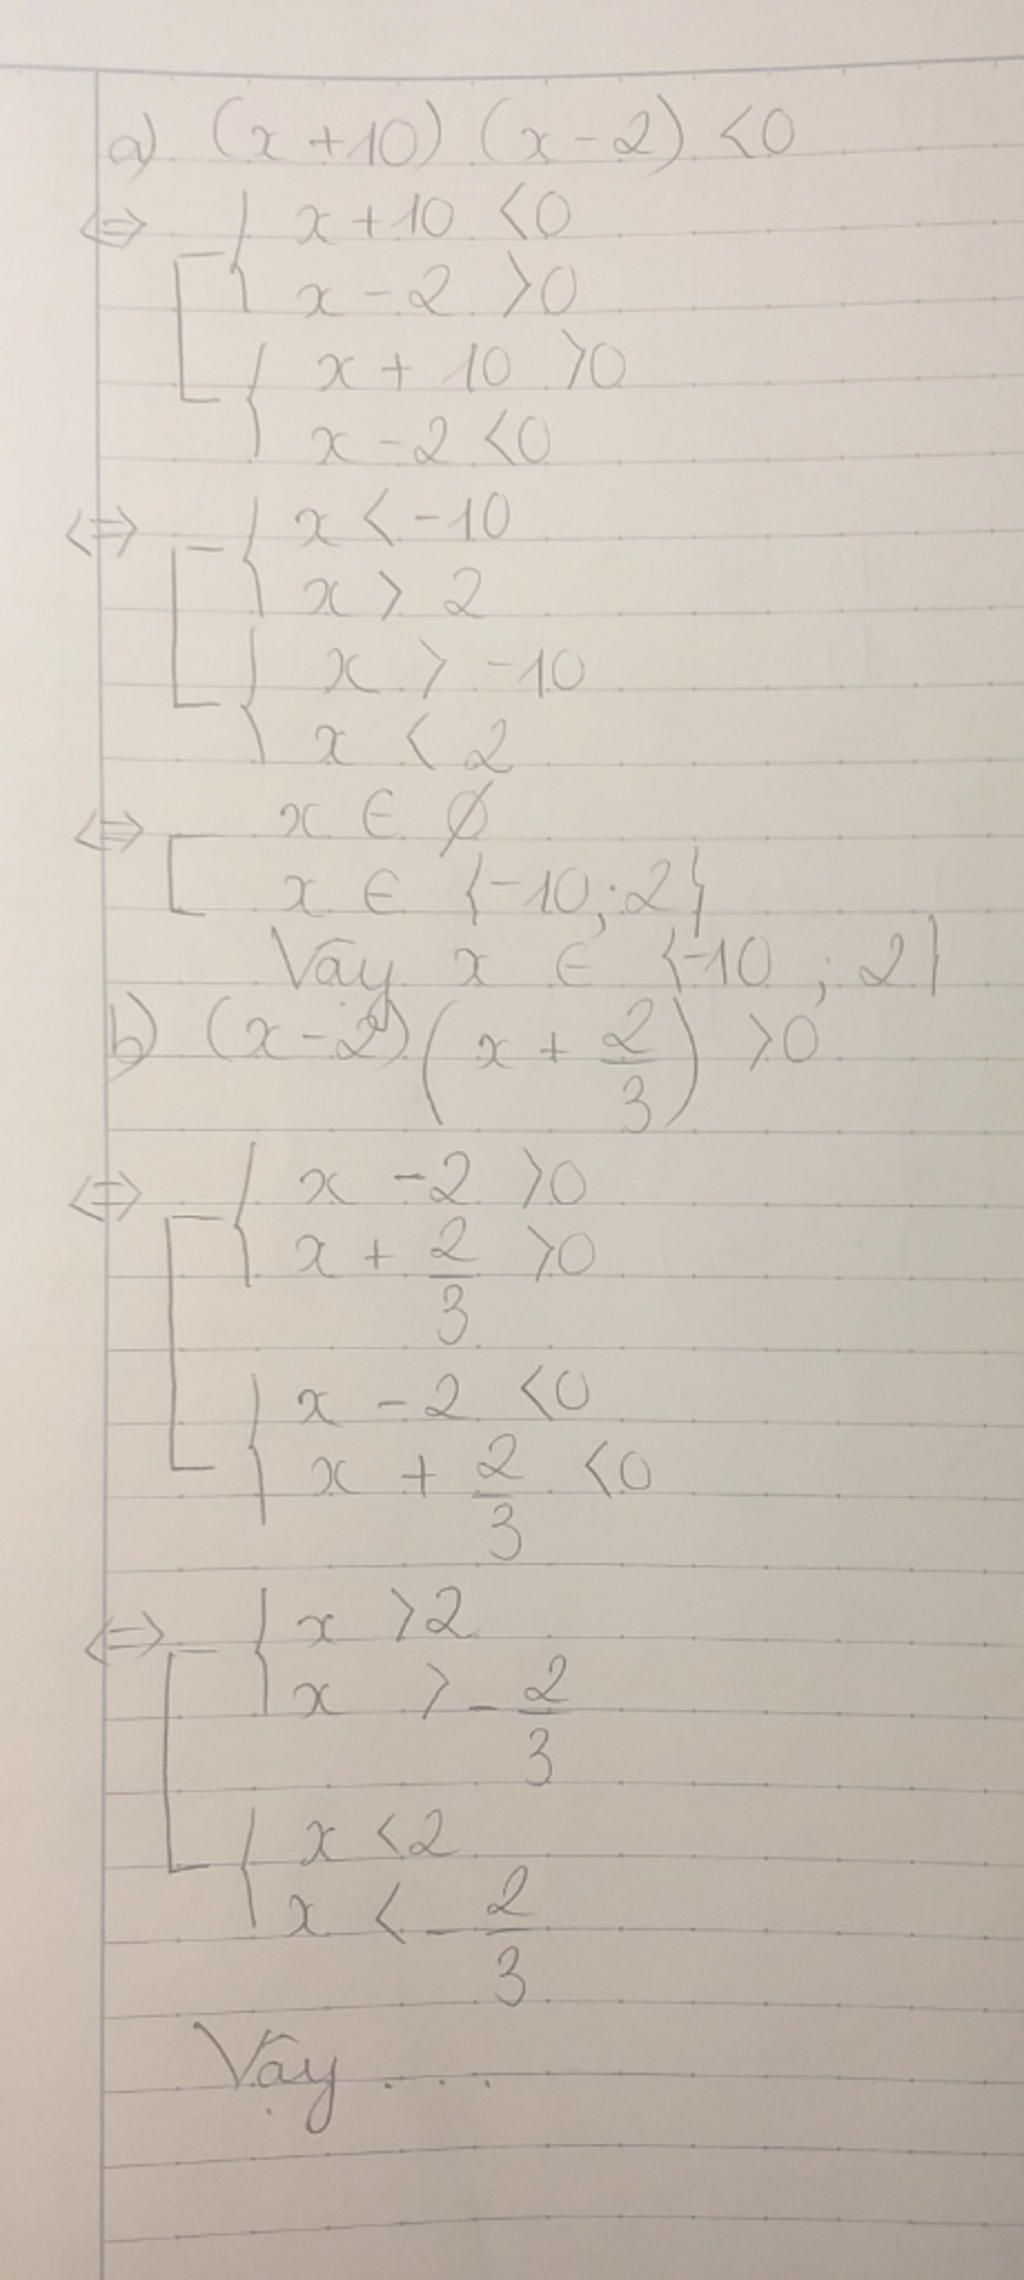 a) (x+10) (x-2) <0
<=> [ { x+10 <0
x-2 >0
{ x+ 10 >0
x-2 <0
<=> [ { x < -10
x > 2
{ x > -10
x < 2
<=> [ x ∈ ∅
x ∈ {-10; 2}
Vậy x ∈ {-10 ; 2}
b) (x-2) (x + 2/3) >0
<=> [ { x -2 >0
x + 2/3 >0
{ x - 2 <0
x + 2/3 <0
<=> [ { x >2
x > - 2/3
{ x <2
x < - 2/3
Vậy ....